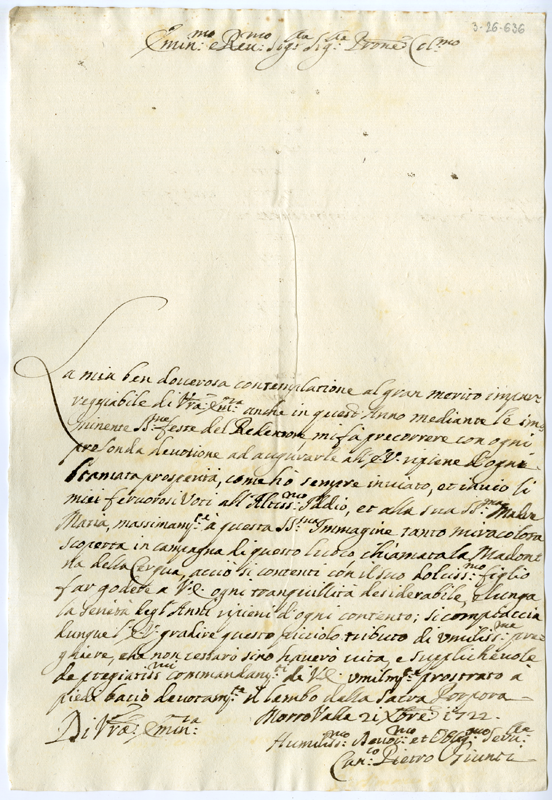 3-26-636
Emin:mo e Rev:mo Sig:r Sig:r Prone Col:mo
La mia ben doverosa contemplatione al gran merito impar
reggiabile di Vra: Em:za anche in quest'Anno mediante le im
minente SS:me feste del Redentore mi fà precorrere con ogni
profonda devotione ad augurarle all'E.V. ripiene d'ogni
bramata prosperità, come hò sempre inviato, et invio li
miei fervorosi Voti all'Altiss:mo Iddio, et alla sua SS:ma Madre
Maria, massimam:te a questa SS:ma Immagine tanto miracolosa
scoperta in campagna di questo luoco chiamata la Madon
na della Cerqua, acciò si contenti con il suo dolciss:mo figlio
far godere a V.E. ogni tranquillità desiderabile, e lunga
la serie degl'Anni ripieni d'ogni contento; si compiaccia
dunque l'E.V. gradire questo picciolo tributo di umiliss:me pre
ghiere, che non cessarò sino haverò vita, e supplichevole
de pregiatiss:mi commandam:ti di V.E. umilm:te prostrato a
piedi bacio devotam:te il lembo della Sacra Porpora
Morro Valle 21 Xbre: 1722.
Di Vra: Emin:za
Humiliss:mo Devot:mo et Oblig:mo Serv:
Can:co Pietro Giunti